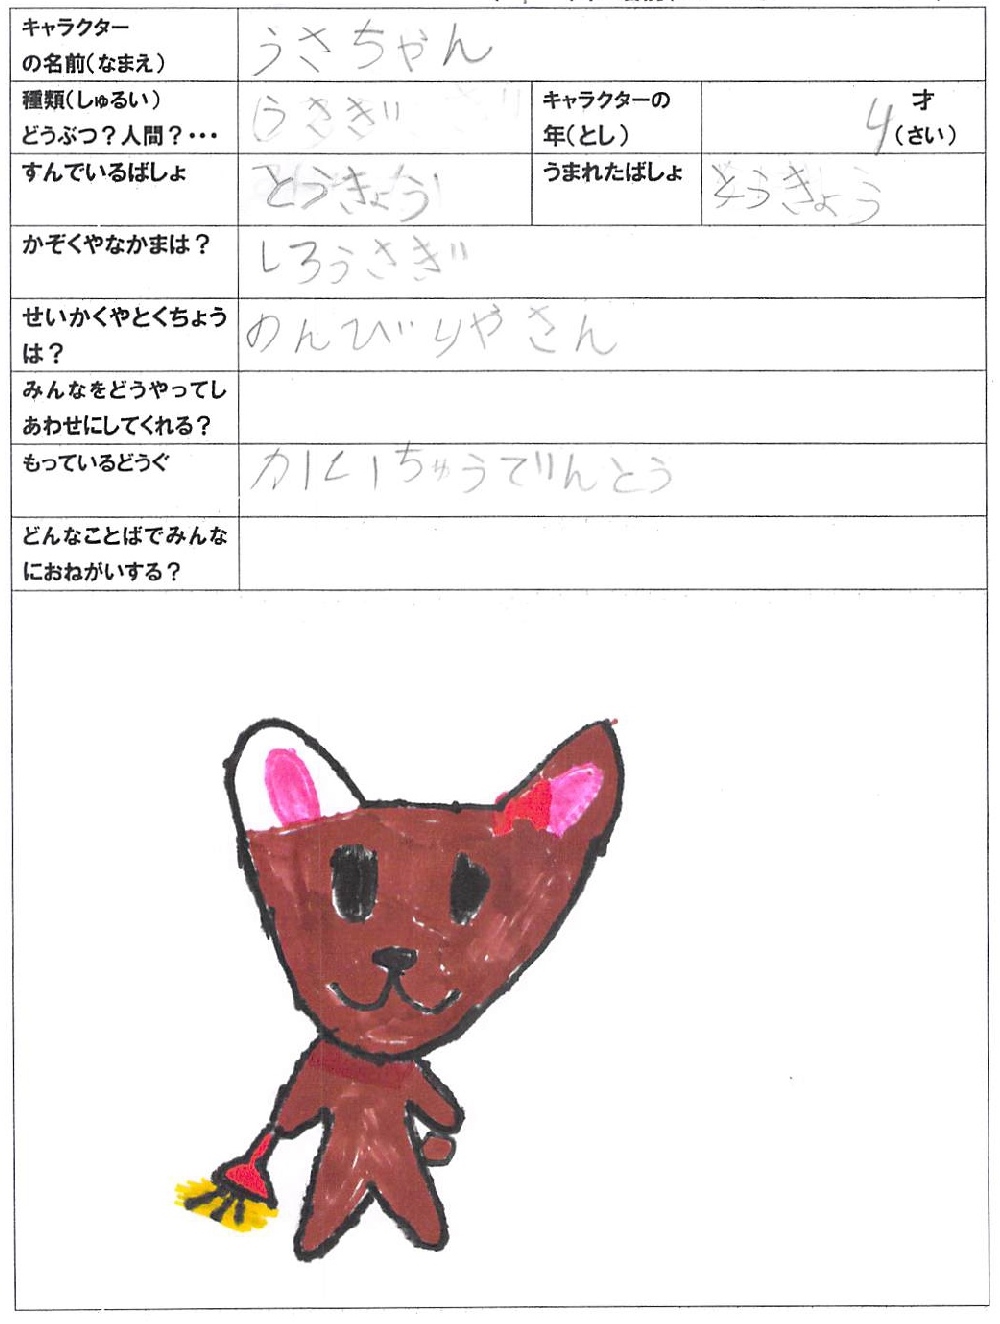 キャラクター
の名前(なまえ)
うさちゃん
種類(しゅるい)
どうぶつ?人間?・・・
うさぎ
キャラクターの
年(とし)
4才
(さい)
すんでいるばしょ
とうきょう
うまれたばしょ
とうきょう
かぞくやなかまは?
しろうさぎ
せいかくやとくちょう
は?
のんびりやさん
みんなをどうやってし
あわせにしてくれる?
もっているどうぐ
かいちゅうでんとう
どんなことばでみんな
におねがいする?